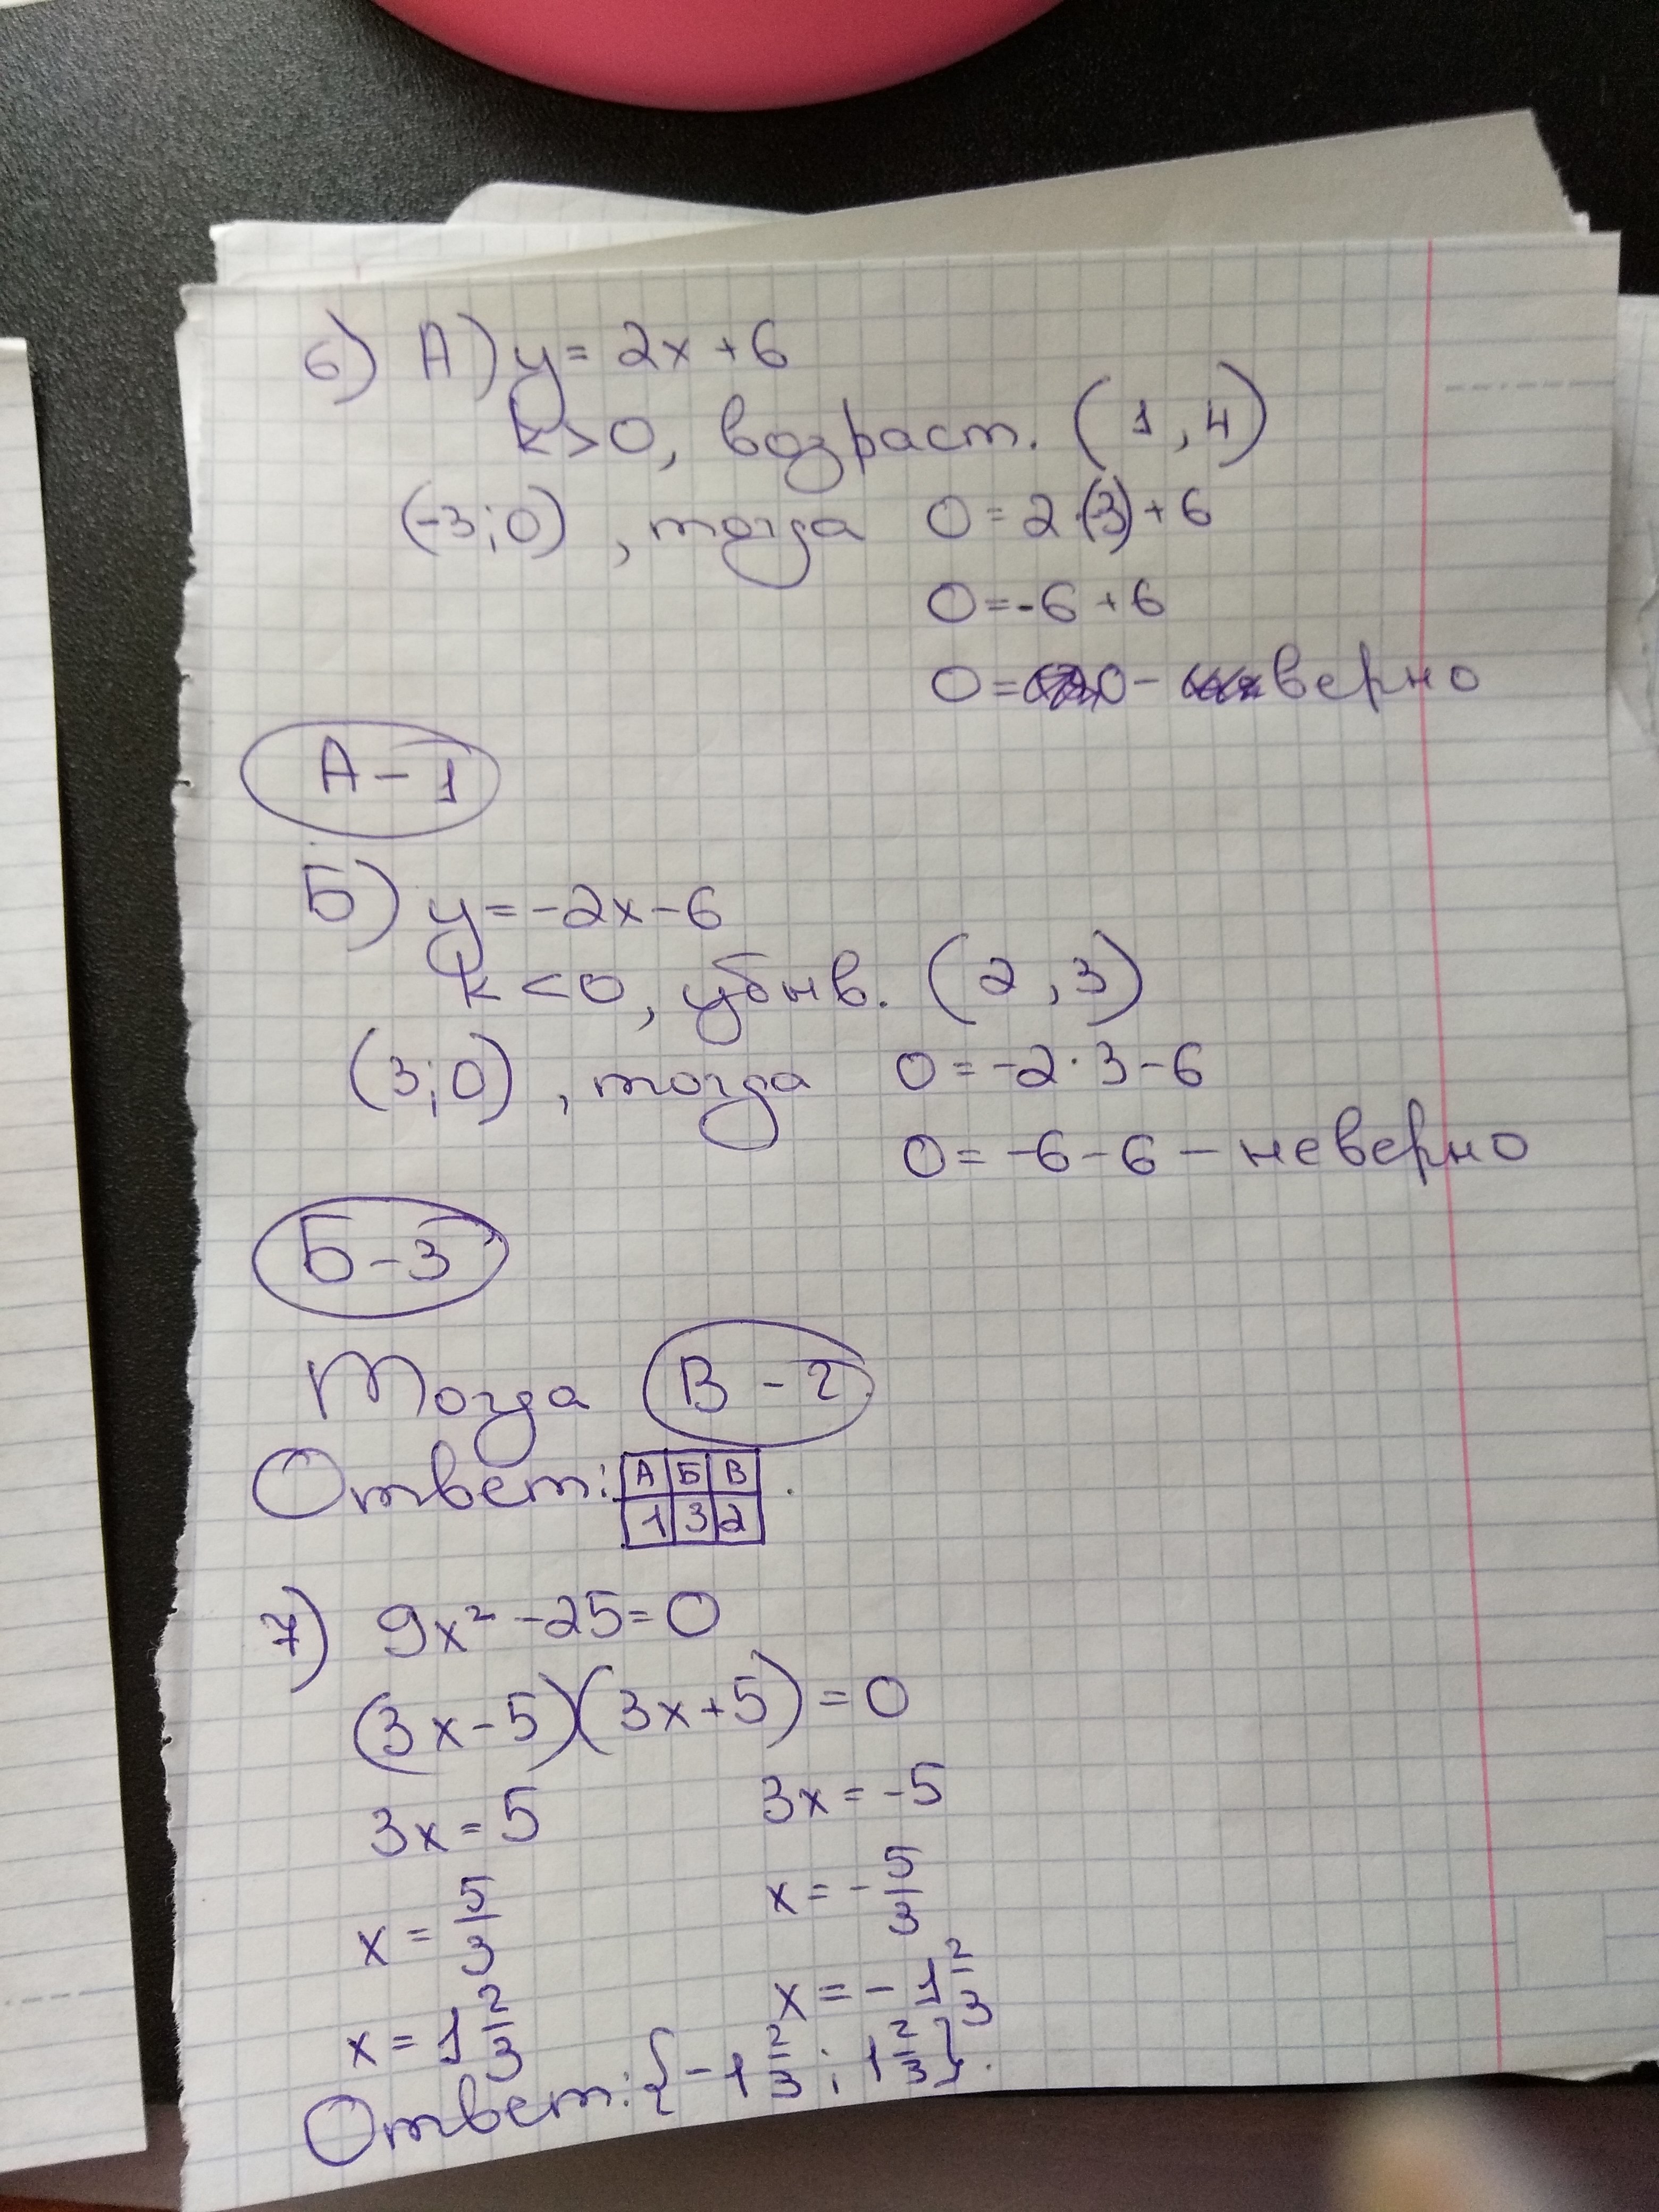 6) А) у = 2х + 6
k > 0, возраст. (1, 4)
(-3; 0), тогда 0 = 2·(-3) + 6
0 = -6 + 6
0 = 0 - верно
А - 1
Б) у = -2х - 6
k < 0, убыв. (2, 3)
(3; 0), тогда 0 = -2·3 - 6
0 = -6 - 6 - неверно
Б - 3
Тогда В - 2
Ответ: А Б В
1 3 2.
7) 9х² - 25 = 0
(3х - 5)(3х + 5) = 0
3х = 5 3х = -5
х = 5/3 х = -5/3
х = 1 2/3 х = -1 2/3
Ответ: {-1 2/3; 1 2/3}.